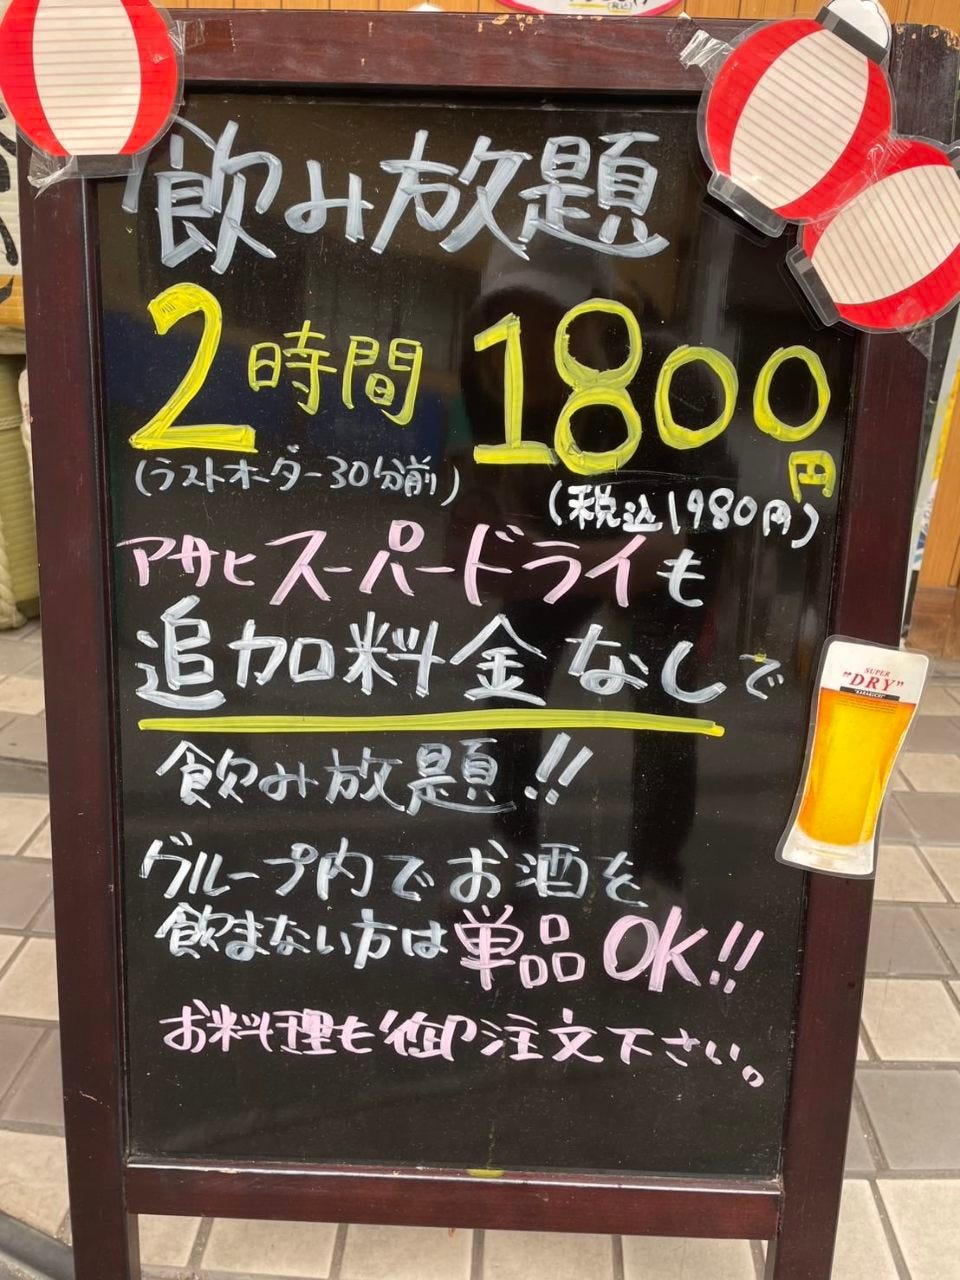 飲み放題
2時間 1800円
(ラストオーダー30分前)
(税込1980円)
アサヒスーパードライも
追加料金なしで
飲み放題!!
グループ内でお酒を
飲まない方は単品OK!!
お料理も御注文下さい。
SUPER
"DRY"